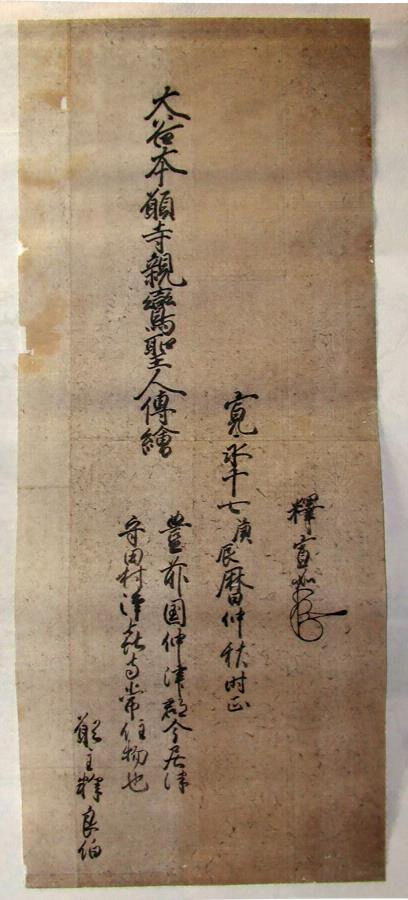 釋宣如
寛永十七庚辰暦仲秋时正
大谷本願寺親鸞聖人傳繪
豊前国仲津郡今居津
守田村浄喜寺常住物也
願主釋良伯